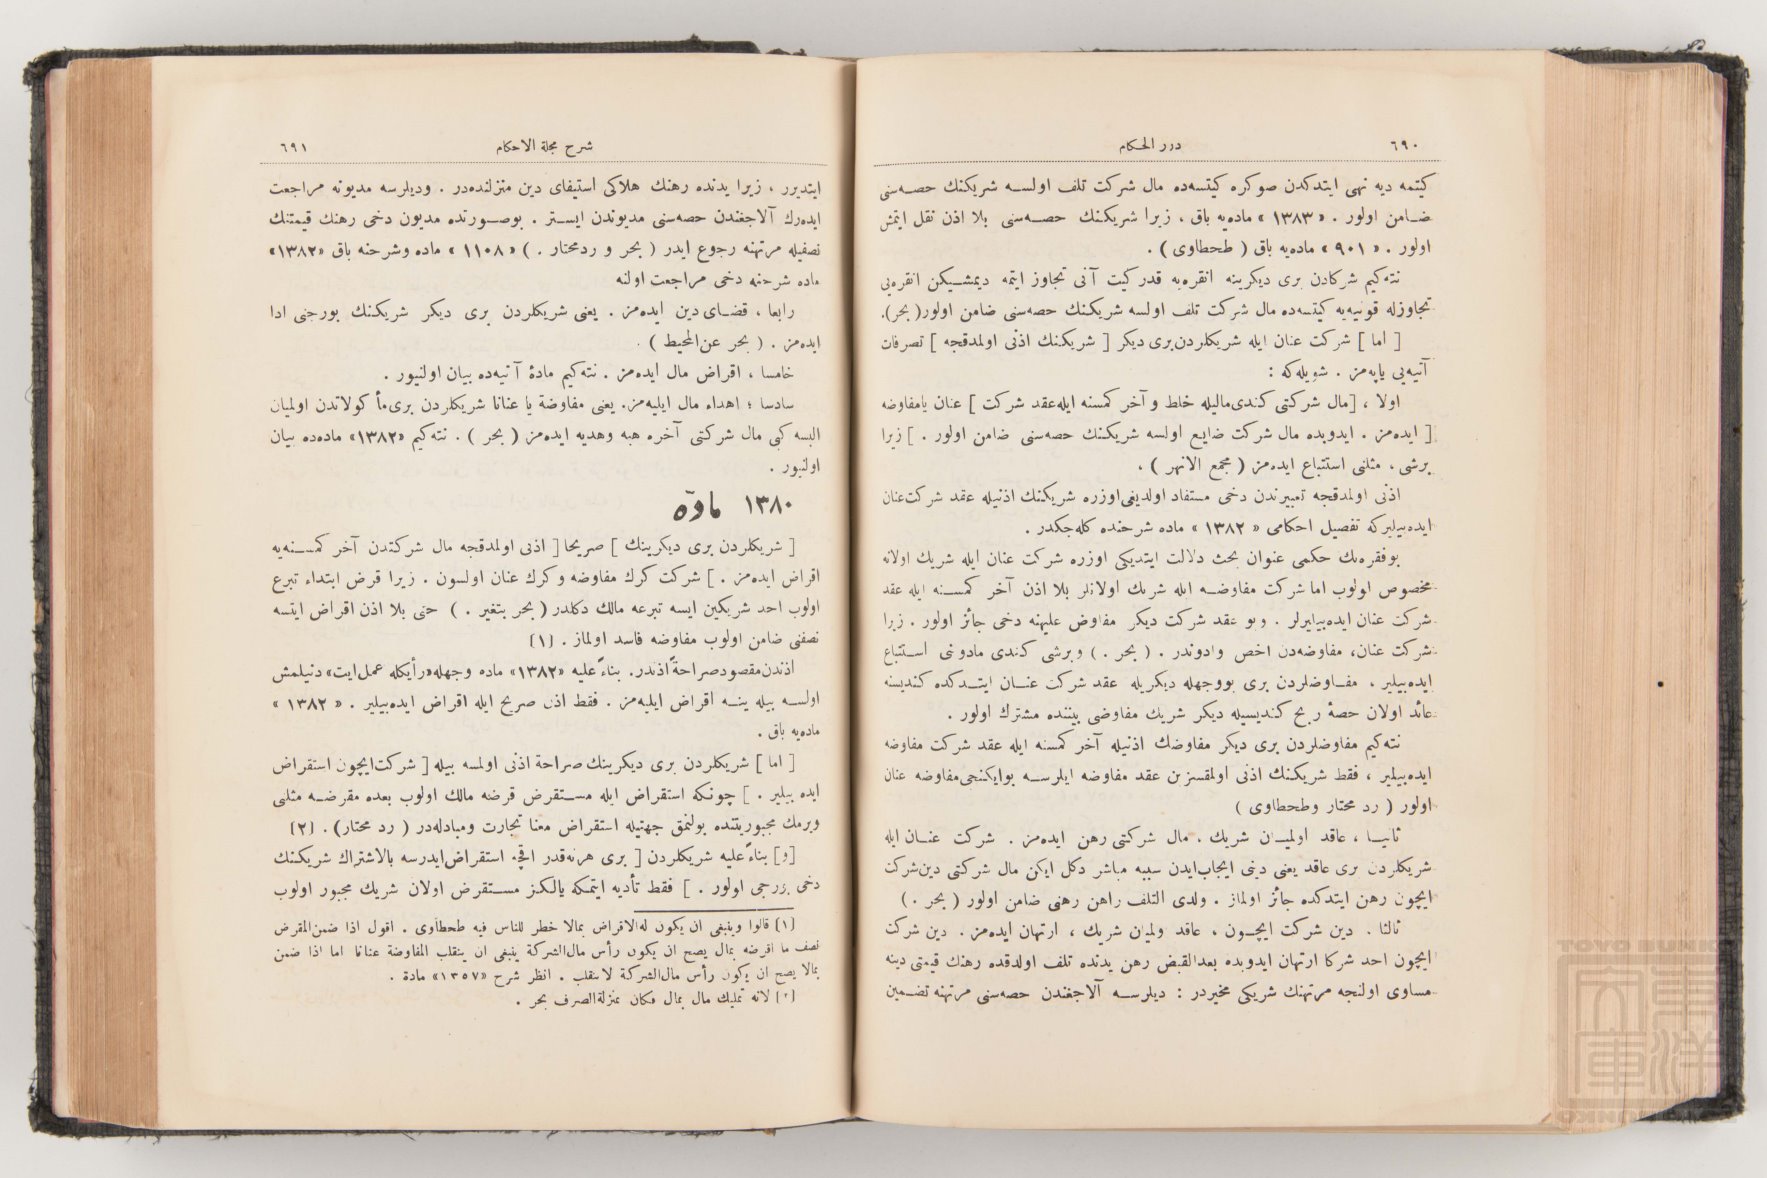 ٦٩٠
درر الحكام
كيتمه ديه نهى ايتدكدن صوكره كيتسه‌ده مال شركت تلف اولسه شريكنك حصه‌سنى
ضامن اولور . « ١٣٨٣ » ماده‌يه باق ، زيرا شريكنك حصه‌سنى بلا اذن نقل ايتمش
اولور . « ٩٠١ » ماده‌يه باق ( طحطاوى ) .
نته‌كيم شركادن برى ديكرينه انقره‌يه قدر كيت آنى تجاوز ايتمه ديمشيكن انقره‌يى
تجاوزله قونيه‌يه كيتسه‌ده مال شركت تلف اولسه شريكنك حصه‌سنى ضامن اولور ( بحر ).
[ اما ] شركت عنان ايله شريكلردن برى ديكر [ شريكنك اذنى اولمدقجه ] تصرفات
آتيه‌يى ياپه‌مز . شويله‌كه :
اولا ، [مال شركتى كندى ماليله خلط و آخر كمسنه ايله عقد شركت ] عنان يامفاوضه
[ ايده‌مز . ايدوبده مال شركت ضايع اولسه شريكنك حصه‌سنى ضامن اولور . ] زيرا
برشى ، مثلنى استتباع ايده‌مز ( مجمع الانهر ) .
اذنى اولمدقجه تعبيرندن دخى مستفاد اولديغى اوزره شريكنك اذنيله عقد شركت عنان
ايده‌بيليركه تفصيل احكامى « ١٣٨٢ » ماده شرحنده كله‌جكدر .
بوفقره‌نك حكمى عنوان بحث دلالت ايتديكى اوزره شركت عنان ايله شريك اولانه
مخصوص اولوب اما شركت مفاوضه ايله شريك اولانلر بلا اذن آخر كمسنه ايله عقد
شركت عنان ايده‌بيليرلر . وبو عقد شركت ديكر مفاوض عليهنه دخى جائز اولور . زيرا
شركت عنان، مفاوضه‌دن اخص وادوندر . ( بحر . ) وبرشى كندى مادوننى استتباع
ايده‌بيلير ، مفاوضلردن برى بووجهله ديكريله عقد شركت عنان ايتدكده كنديسنه
عائد اولان حصهٔ ربح كنديسيله ديكر شريك مفاوضى بيننده مشترك اولور .
نته‌كيم مفاوضلردن برى ديكر مفاوضك اذنيله آخر كمسنه ايله عقد شركت مفاوضه
ايده‌بيلير ، فقط شريكنك اذنى اولمقسزين عقد مفاوضه ايلرسه بوايكنجى مفاوضه عنان
اولور ( رد محتار وطحطاوى )
ثانيا ، عاقد اولميان شريك ، مال شركتى رهن ايده‌مز . شركت عنان ايله
شريكلردن برى عاقد يعنى دينى ايجاب ايدن سببه مباشر دكل ايكن مال شركتى دين شركت
ايچون رهن ايتدكده جائز اولماز . ولدى التلف راهن رهنى ضامن اولور ( بحر . )
ثالثا . دين شركت ايچون ، عاقد ولميان شريك ، ارتهان ايده‌مز . دين شركت
ايچون احد شركا ارتهان ايدوبده بعدالقبض رهن يدنده تلف اولدقده رهنك قيمتى دينه
مساوى اولنجه مرتهنك شريكى مخيردر : ديلرسه آلاجغندن حصه‌سنى مرتهنه تضمين
شرح مجلة الاحكام
٦٩١
ايتديرر ، زيرا يدنده رهنك هلاكى استيفاى دين منزلنده‌در . وديلرسه مديونه مراجعت
ايده‌رك آلاجغندن حصه‌سنى مديوندن ايستر . بوصورتده مديون دخى رهنك قيمتنك
نصفيله مرتهنه رجوع ايدر ( بحر و ردمحتار . ) « ١١٠٨ » ماده وشرحنه باق «١٣٨٢»
ماده شرحنه دخى مراجعت اولنه
رابعا ، قضاى دين ايده‌مز . يعنى شريكلردن برى ديكر شريكنك بورجنى ادا
ايده‌مز . ( بحر عن المحيط ) .
خامسا ، اقراض مال ايده‌مز . نته‌كيم مادهٔ آتيه‌ده بيان اولنيور .
سادسا ؛ اهداء مال ايليه‌مز. يعنى مفاوضة يا عنانا شريكلردن برى مأكولاتدن اولميان
البسه كبى مال شركتى آخره هبه وهديه ايده‌مز ( بحر ) . نته‌كيم «١٣٨٢» ماده‌ده بيان
اولنيور .
١٣٨٠ ماده
[ شريكلردن برى ديكرينك ] صريحا [ اذنى اولمدقجه مال شركتدن آخر كمسنه‌يه
اقراض ايده‌مز . ] شركت كرك مفاوضه وكرك عنان اولسون . زيرا قرض ابتداء تبرع
اولوب احد شريكين ايسه تبرعه مالك دكلدر ( بحر بتغير . ) حتى بلا اذن اقراض ايتسه
نصفنى ضامن اولوب مفاوضه فاسد اولماز . (١)
اذندن مقصود صراحةً اذندر. بناءً عليه «١٣٨٢» ماده وجهله «رأيكله عمل ايت» دنيلمش
اولسه بيله ينه اقراض ايليه‌مز . فقط اذن صريح ايله اقراض ايده‌بيلير . « ١٣٨٢ »
ماده‌يه باق .
[ اما ] شريكلردن برى ديكرينك صراحة اذنى اولمسه بيله [ شركت ايچون استقراض
ايده بيلير . ] چونكه استقراض ايله مستقرض قرضه مالك اولوب بعده مقرضه مثلنى
ويرمك مجبوريتنده بولنمق جهتيله استقراض معنا تجارت ومبادله‌در ( رد محتار) . (٢)
[و] بناءً عليه شريكلردن [ برى هرنه‌قدر اقچه استقراض ايدرسه بالاشتراك شريكنك
دخى بورجى اولور . ] فقط تأديه ايتمكه يالكز مستقرض اولان شريك مجبور اولوب
(١) قالوا وينبغى ان يكون له الاقراض بمالا خطر للناس فيه طحطاوى . اقول اذا ضمن المقرض
نصف ما اقرضه بمال يصح ان يكون رأس مال الشركة ينبغى ان ينقلب المفاوضة عنانا اما اذا ضمن
بمالا يصح ان يكون رأس مال الشركة لا ينقلب . انظر شرح «١٣٥٧» مادة .
(٢) لانه تمليك مال بمال فكان بمنزلة الصرف بحر .
TOYO BUNKO